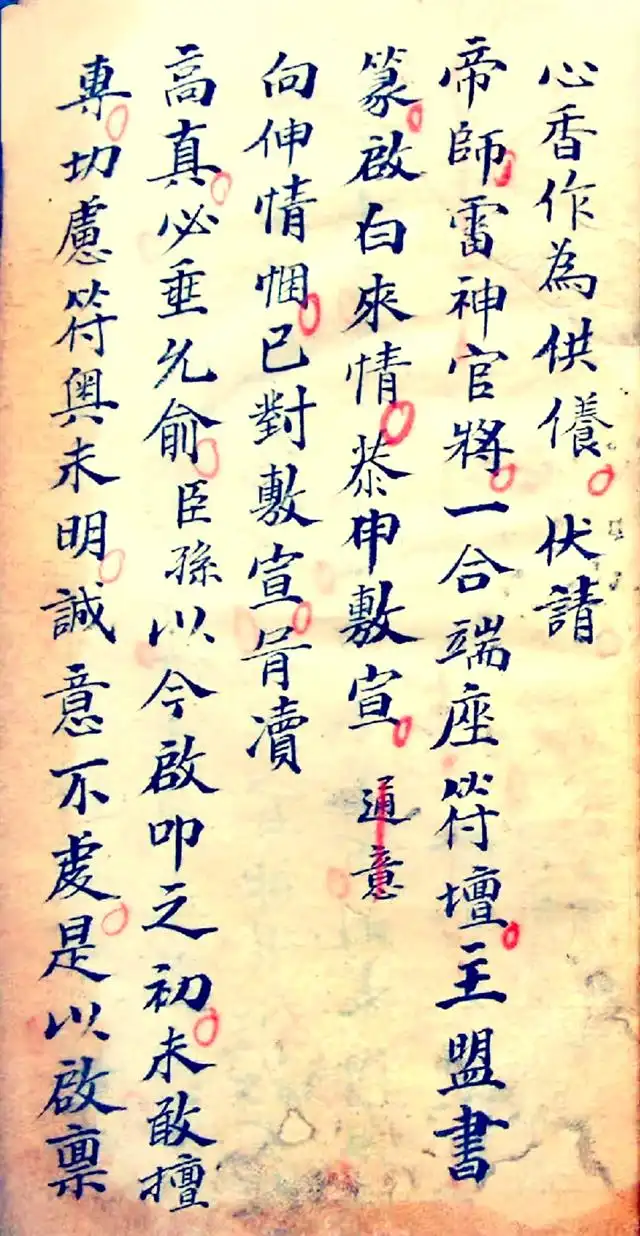 心香作為供儀伏請
帝師雷神官將一合端座符壇主盟書
篆啟白來情恭申敷宣通意
向伸情悃已對敷宣冐瀆
高真必垂允俞臣孫以今啟叩之初未敢擅
專切慮符奧未明誠意不虔是以啟禀